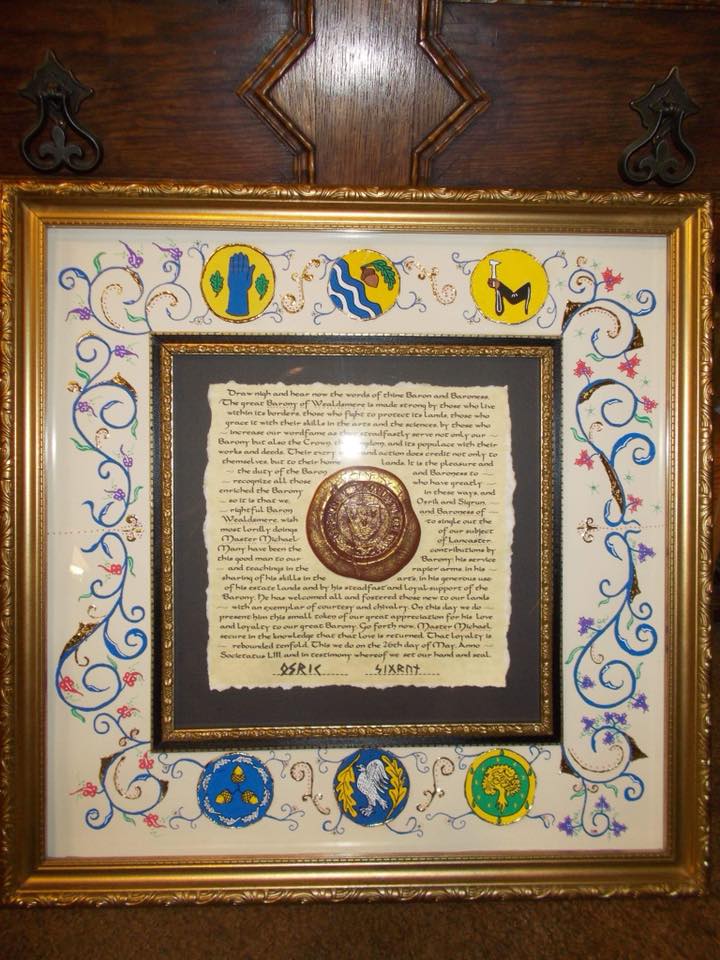 Draw nigh and hear now the words of thine Baron and Baroness.
The great Barony of Wealdsmere is made strong by those who live
within its borders, those who fight to protect its lands, those who
grace it with their skills in the arts and the sciences, by those who
~ increase our wordfame as they steadfastly serve not only our ~
Barony but also the Crown, the Kingdom, and its populace with their
works and deeds. Their every and action does credit not only to
themselves, but to their home lands. It is the pleasure and
~ the duty of the Baron and Baroness to ~
~ recognize all those who have greatly ~
enriched the Barony in these ways, and
so it is that we, Osric and Sigrun,
~ rightful Baron and Baroness of ~
Wealdsmere, wish to single out the
most lordly doings of our subject
Master Michael of Lancaster.
Many have been the contributions by
this good man to our Barony: his service
~ and teachings in the rapier arms, in his ~
sharing of his skills in the arts, in his generous use
of his estate lands and by his steadfast and loyal support of the
Barony. He has welcomed all and fostered those new to our lands
~ with an exemplar of courtesy and chivalry. On this day we do ~
present him this small token of our great appreciation for his love
and loyalty to our great Barony. Go forth now, Master Michael,
secure in the knowledge that that love is returned. That loyalty is
~ rebounded tenfold. This we do on the 26th day of May, Anno ~
Societatus LIII, and in testimony whereof we set our hand and seal.
OSRIC SIGRUN